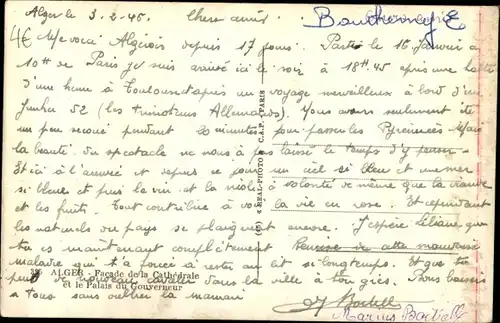 Alger le 3.2.45. Chère amie
Me voici Algérois depuis 17 jours. Partie le 16 janvier à
10H de Paris je suis arrivé ici le soir à 18H45 après une halte
d'une heure à Toulouse et après un voyage merveilleux à bord d'un
Junker 52 (les trimoteurs Allemands). Nous avons seulement été
un peu secoué pendant 20 minutes pour passer les Pyrénnées. Mais
la beauté du spectacle ne nous a pas laissé le temps d'y penser.
Et ici à l'arrivée et depuis ce jour un ciel si bleu et une mer
si bleue et puis le vin et la à volonté de même que la
et les fruits. Tout contribue à voir la vie en rose. Et cependant
les naturels du pays se plaignent encore. J'espère Liliane que
tu es maintenant complètement de cette mauvaise
maladie qui t'a forcée à rester au lit si longtemps. Et que tu
peux de nouveau cavaler dans la ville à ton gré. Bons baisers
à tous sans oublier la maman
(C.A.P.) "REAL-PHOTO" C.A.P. PARIS
ALGER - Façade de la Cathédrale
et le Palais du Gouverneur